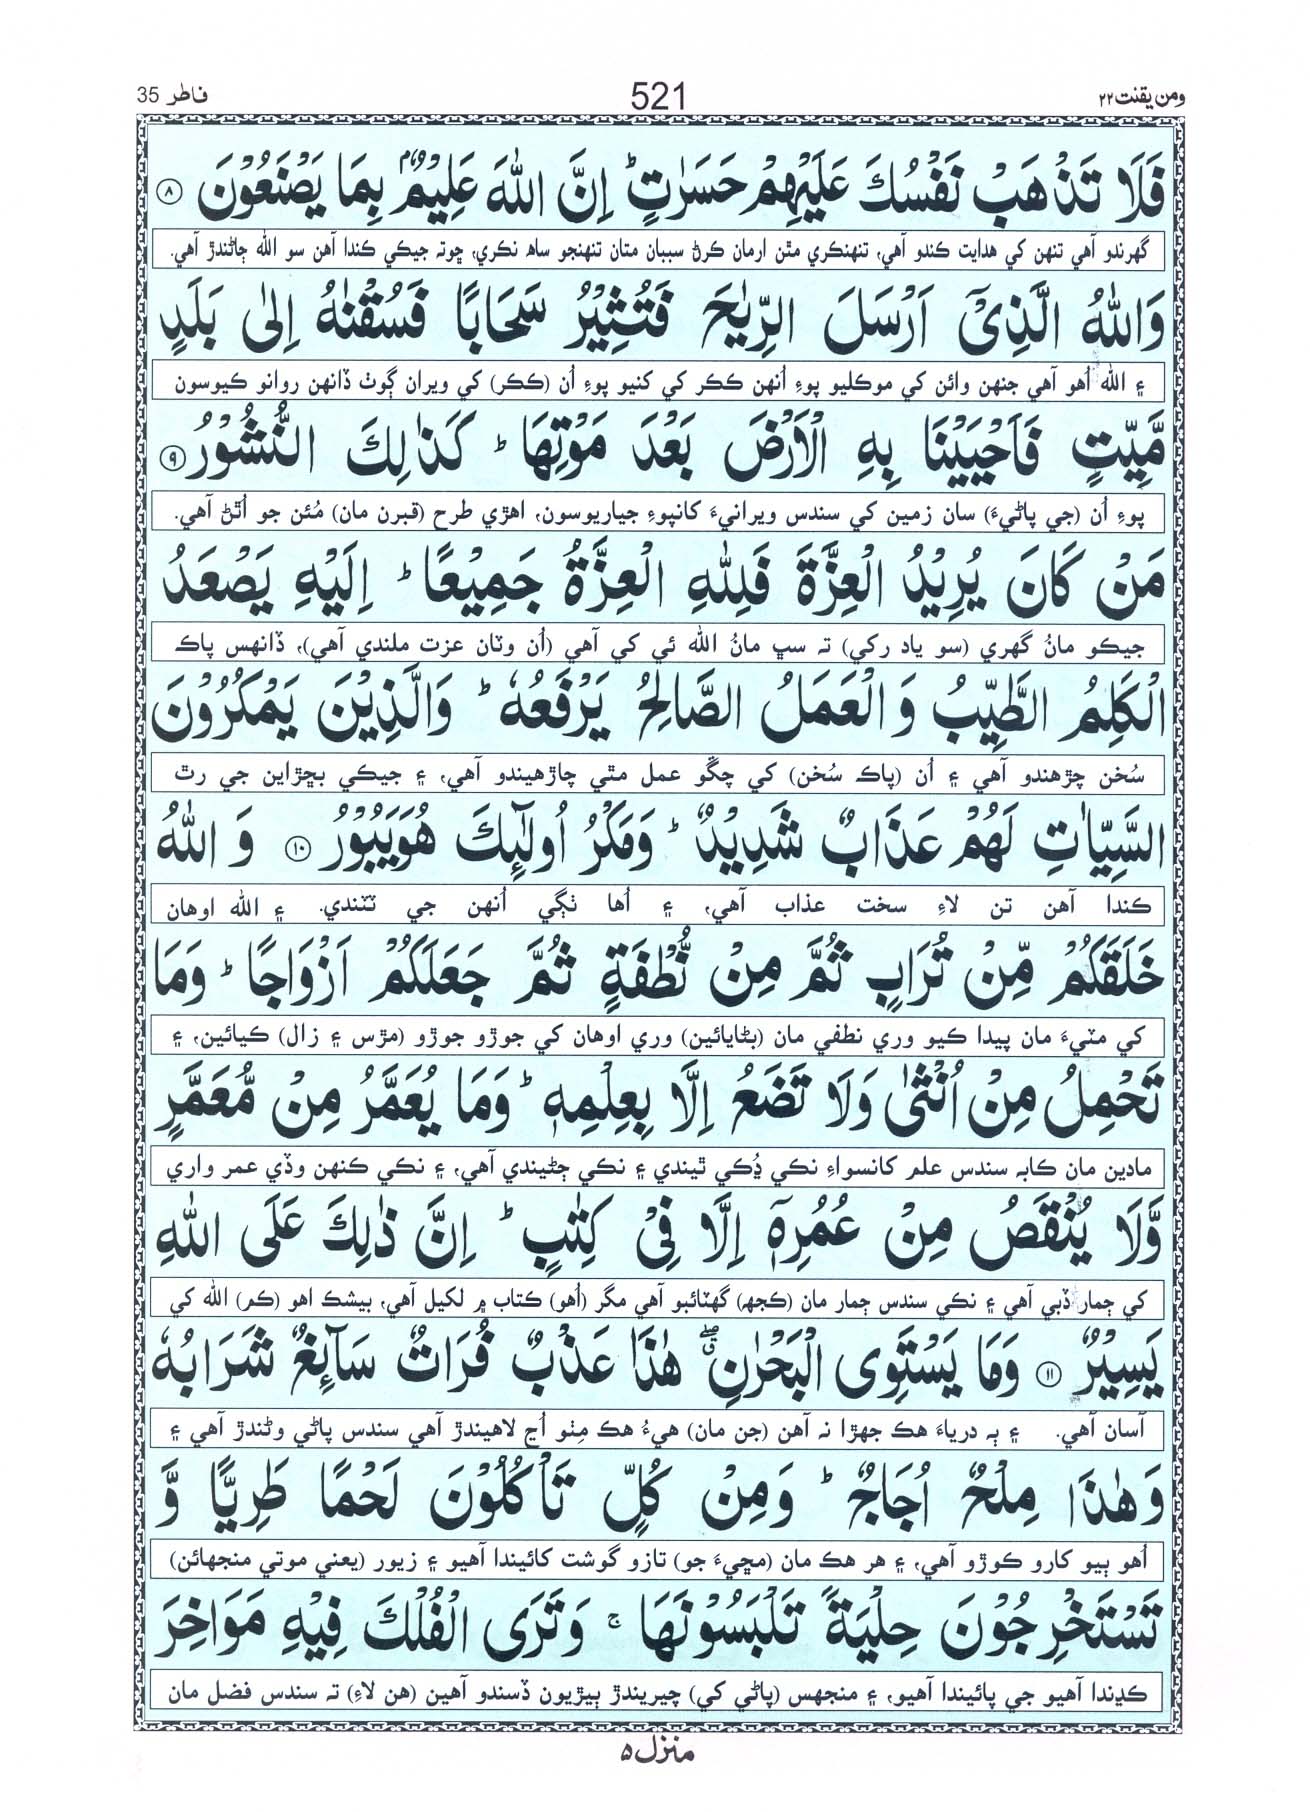 ومن يقنت ٢٢ 521 فاطر 35
فَلَا تَذْهَبْ نَفْسُكَ عَلَيْهِمْ حَسَرٰتٍ ؕ اِنَّ اللّٰهَ عَلِيْمٌۢ بِمَا يَصْنَعُوْنَ ۝۸
گهرندو آهي تنهن کي هدايت ڪندو آهي، تنهنڪري مٿن ارمان ڪرڻ سببان متان تنهنجو ساھ نڪري، ڇوتہ جيڪي ڪندا آهن سو الله ڄاڻندڙ آهي.
وَاللّٰهُ الَّذِيْۤ اَرْسَلَ الرِّيٰحَ فَتُثِيْرُ سَحَابًا فَسُقْنٰهُ اِلٰى بَلَدٍ
۽ الله اُهو آهي جنهن وائن کي موڪليو پوءِ اُنهن ڪڪر کي کنيو پوءِ اُن (ڪڪر) کي ويران ڳوٺ ڏانهن روانو ڪيوسون
مَّيِّتٍ فَاَحْيَيْنَا بِهِ الْاَرْضَ بَعْدَ مَوْتِهَا ؕ كَذٰلِكَ النُّشُوْرُ ۝۹
پوءِ اُن (جي پاڻيءَ) سان زمين کي سندس ويرانيءَ کانپوءِ جياريوسون، اهڙي طرح (قبرن مان) مُئن جو اُٿڻ آهي.
مَنْ كَانَ يُرِيْدُ الْعِزَّةَ فَلِلّٰهِ الْعِزَّةُ جَمِيْعًا ؕ اِلَيْهِ يَصْعَدُ
جيڪو مانُ گهري (سو ياد رکي) تہ سڀ مانُ الله ئي کي آهي (اُن وٽان عزت ملندي آهي)، ڏانهس پاڪ
الْكَلِمُ الطَّيِّبُ وَالْعَمَلُ الصَّالِحُ يَرْفَعُهٗ ؕ وَالَّذِيْنَ يَمْكُرُوْنَ
سُخن چڙهندو آهي ۽ اُن (پاڪ سُخن) کي چڱو عمل مٿي چاڙهيندو آهي، ۽ جيڪي بڇڙاين جي رٿ
السَّيِّاٰتِ لَهُمْ عَذَابٌ شَدِيْدٌ ؕ وَمَكْرُ اُولٰٓئِكَ هُوَ يَبُوْرُ ۝۱۰ وَاللّٰهُ
ڪندا آهن تن لاءِ سخت عذاب آهي، ۽ اُها ٺڳي اُنهن جي ٽٽندي. ۽ الله اوهان
خَلَقَكُمْ مِّنْ تُرَابٍ ثُمَّ مِنْ نُّطْفَةٍ ثُمَّ جَعَلَكُمْ اَزْوَاجًا ؕ وَمَا
کي مٽيءَ مان پيدا ڪيو وري نطفي مان (بڻايائين) وري اوهان کي جوڙو جوڙو (مڙس ۽ زال) ڪيائين، ۽
تَحْمِلُ مِنْ اُنْثٰى وَلَا تَضَعُ اِلَّا بِعِلْمِهٖ ؕ وَمَا يُعَمَّرُ مِنْ مُّعَمَّرٍ
مادين مان ڪابہ سندس علم کانسواءِ نڪي ڍُڪي ٿيندي ۽ نڪي ڄڻيندي آهي، ۽ نڪي ڪنهن وڏي عمر واري
وَّلَا يُنْقَصُ مِنْ عُمُرِهٖۤ اِلَّا فِيْ كِتٰبٍ ؕ اِنَّ ذٰلِكَ عَلَى اللّٰهِ
کي ڄمار ڏبي آهي ۽ نڪي سندس ڄمار مان (ڪجهہ) گهٽائبو آهي مگر (اُهو) ڪتاب ۾ لکيل آهي، بيشڪ اهو (ڪم) الله کي
يَسِيْرٌ ۝۱۱ وَمَا يَسْتَوِي الْبَحْرٰنِ ۖ هٰذَا عَذْبٌ فُرَاتٌ سَآئِغٌ شَرَابُهٗ
آسان آهي. ۽ ٻہ درياءَ هڪ جهڙا نہ آهن (جن مان) هيءُ هڪ مِٺو اُڃ لاهيندڙ آهي سندس پاڻي وڻندڙ آهي ۽
وَهٰذَا مِلْحٌ اُجَاجٌ ؕ وَمِنْ كُلٍّ تَاْكُلُوْنَ لَحْمًا طَرِيًّا وَّ
اُهو ٻيو کارو ڪوڙو آهي، ۽ هر هڪ مان (مڇيءَ جو) تازو گوشت کائيندا آهيو ۽ زيور (يعني موتي منجهائن)
تَسْتَخْرِجُوْنَ حِلْيَةً تَلْبَسُوْنَهَا ۚ وَتَرَى الْفُلْكَ فِيْهِ مَوَاخِرَ
ڪڍندا آهيو جي پائيندا آهيو، ۽ منجهس (پاڻي کي) چيريندڙ ٻيڙيون ڏسندو آهين (هن لاءِ) تہ سندس فضل مان
منزل ۵